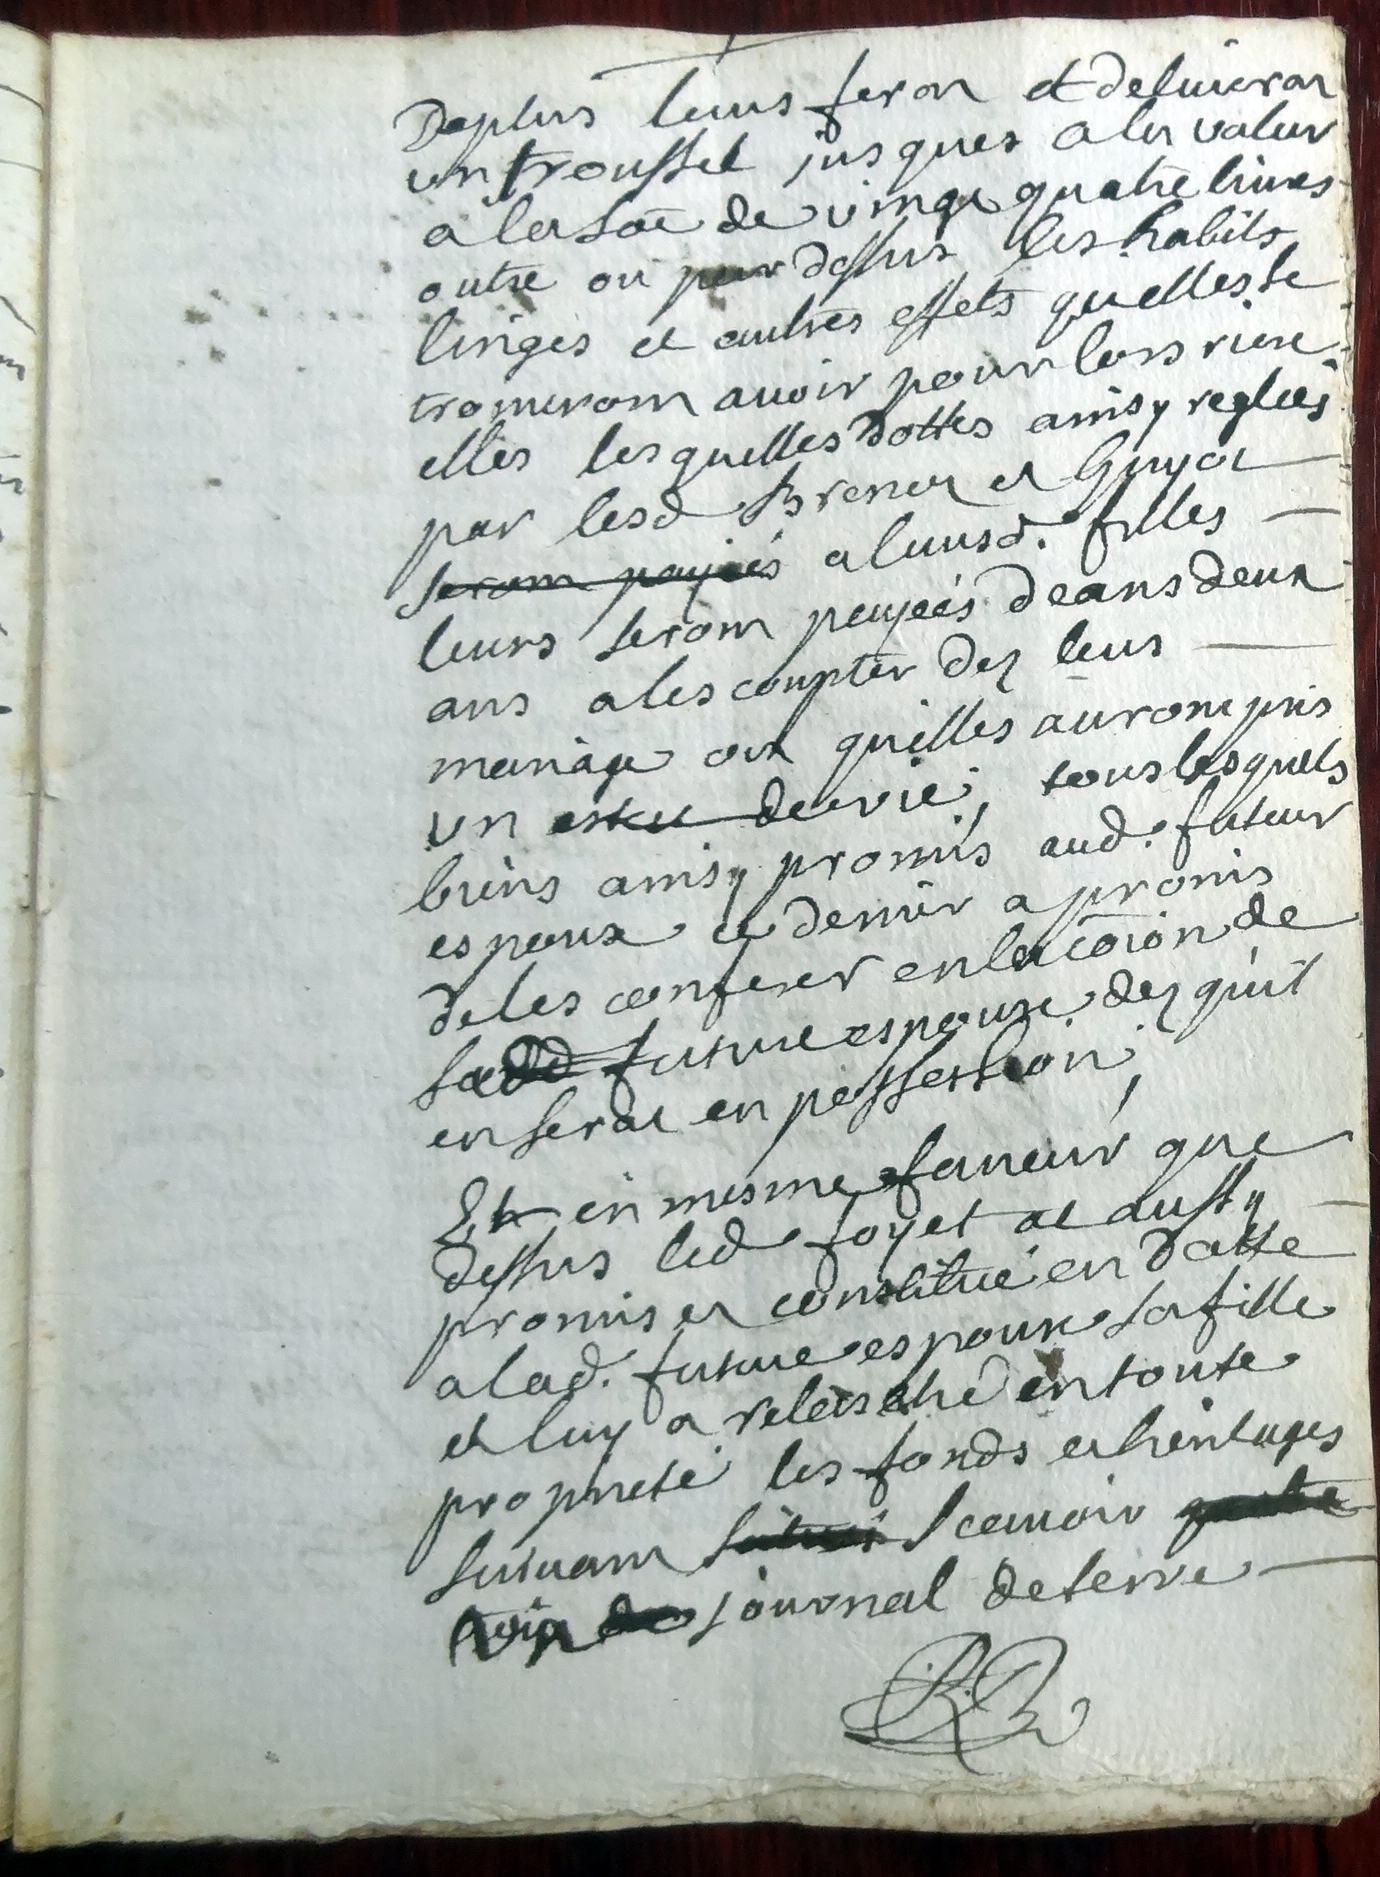 Deplus leurs feron et deluieron
un troussel jusques a la valeur
a la soē de vingt quatre liures
outre ou par dessus les habits
linges et autres effets quelles se
trouueront auoir pour lors riere
elles lesquelles dottes ainsy reglées
par lesd. Brenet et Guyot
seront payeés a leursd. filles
leurs seront payeés deans deux
ans a les coupter dez leur
mariage ou quelles auront pris
un estat de vie, tous lesquels
biens ainsy promis aud. futeur
espoux ce dernier a promis
de les conferer en la cōion de
sa future espouse dez quil
en serat en possession,
Et en mesme faueur que
dessus led. foyet at aussy
promis et constitué en dotte
a lad. future espouse sa fille
et luy a relasché en toute
proprieté les fonds et heritages
suiuam scauoir
journal de terre